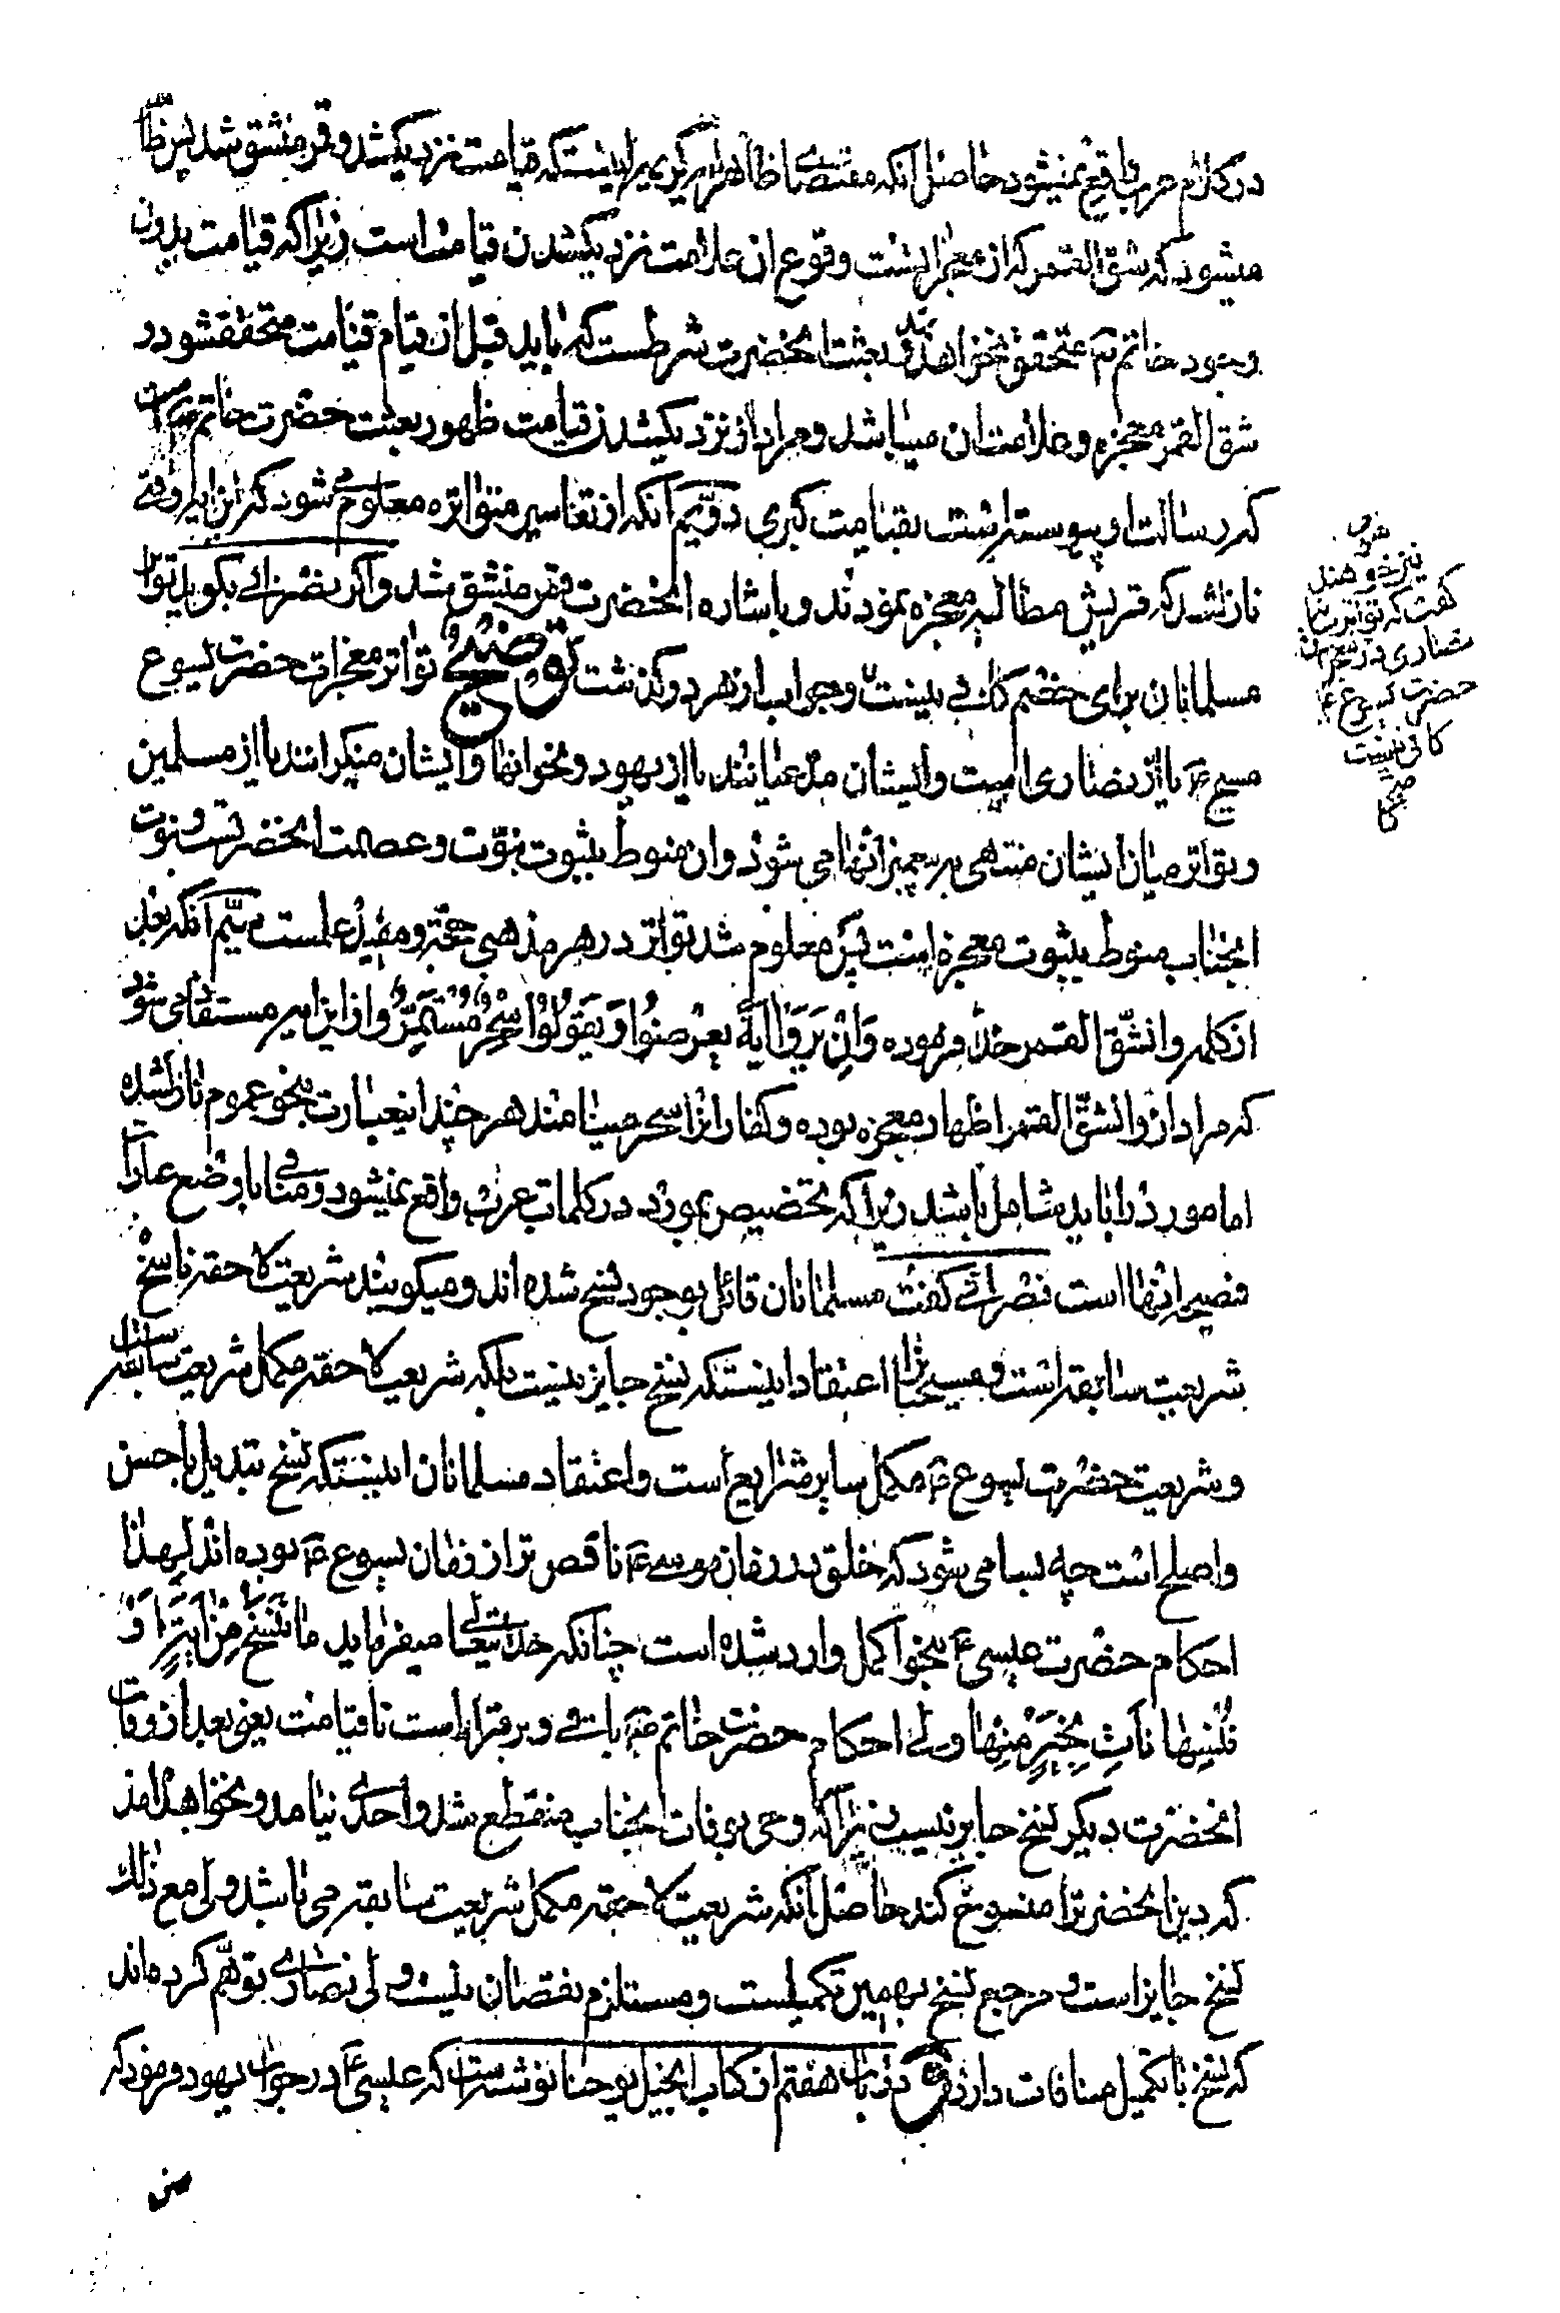 در کلام عرب واقع نمیشود حاصل آنکه مقتضی ظاهر آیه کریمه اینستکه قیامت نزدیکشد و قمر منشق شد پس ظاهر
میشود که شق القمر که از معجزاتست وقوع ان علامت نزدیکشدن قیامت است زیرا که قیامت بدون
وجود خاتم ص متحقق نخواهد شد بعثت انحضرت شرطست که باید قبل از قیام قیامت متحققشود و
شق القمر معجزه و علامت ان میباشد و مراد از نزدیکشدن قیامت ظهور بعثت حضرت خاتم است
که رسالت او پیوسته است بقیامت کبری دویم آنکه از تفاسیر متواتره معلوم می شود که این ایه وقتی
نازلشد که قریش مطالبه معجزه نمودند و باشاره انحضرت قمر منشق شد و اگر نصرانی بکوید تواتر
مسلمانان برای خصم کافی نیست جواب از هر دو کذشت توضیح تواتر معجزات حضرت یسوع
مسیح ع یا از نصاری است و ایشان مدعیانند یا از یهود و نحو انها و ایشان منکرانند یا از مسلمین
و تواتر میان ایشان منتهی به پیغمبر انها می شود و ان منوط بثبوت نبوت و عصمت انحضرتست و نبوت
انجناب منوط بثبوت معجزه است پس معلوم شد تواتر در هر مذهبی حجة و مفید علمست سیّم آنکه بعد
از کلمه وانشق القمر خدا فرموده وَاِنْ یَرَوْا ایَةً یُعْرِضُوا وَیَقُولُوا سِحْرٌ مُسْتَمِرٌّ و از این ایه مستفاد می شود
که مراد از وانشق القمر اظهار معجزه بوده و کفار انرا سحر مینامند هر چند اینعبارت بنحو عموم نازلشده
اما مورد را باید شامل باشد زیرا که تخصیص بمورد در کلمات عرب واقع نمیشود و منافی با وضع عبارات
فصیحه انها است نصرانی کفت مسلمانان قائل بوجود نسخ شده اند و میکویند شریعت لاحقه ناسخ
شریعت سابقه است و مسیحیانرا اعتقاد اینستکه نسخ جایز نیست بلکه شریعت لاحقه مکمل شریعت سابقه است
و شریعت حضرت یسوع ع مکمل سایر شرایع است و اعتقاد مسلمانان اینستکه نسخ تبدیل باحسن
و اصلح است چه بسا می شود که خلق در زمان موسی ع ناقص تر از زمان یسوع ع بوده اند لهذا
احکام حضرت عیسی ع بنحو اکمل وارد شده است چنانکه خداوند تعالی میفرماید مَا نَنْسَخْ مِنْ آیَةٍ اَوْ
نُنْسِهَا نَاْتِ بِخَیْرٍ مِنْهَا ولی احکام حضرت خاتم ص باقی و برقرار است تا قیامت یعنی بعد از وفات
انحضرت دیکر نسخ جایز نیست زیرا که وحی بوفات انجناب منقطع شد و احدی نیامد و نخواهد امد
که دین انحضرترا منسوخ کند حاصل آنکه شریعت لاحقه مکمل شریعت سابقه می باشد ولی مع ذلک
نسخ جایز است و مرجع نسخ بهمین تکمیلست و مستلزم نقصان نیست ولی نصاری توهّم کرده اند
که نسخ با تکمیل منافات دارد در باب هفتم از کتاب انجیل یوحنا نوشته است که عیسی ع در جواب یهود فرمود که
نیز خواهند
کفت که تواتر
نصاری در معجزات
حضرت یسوع ع
کافی نیست